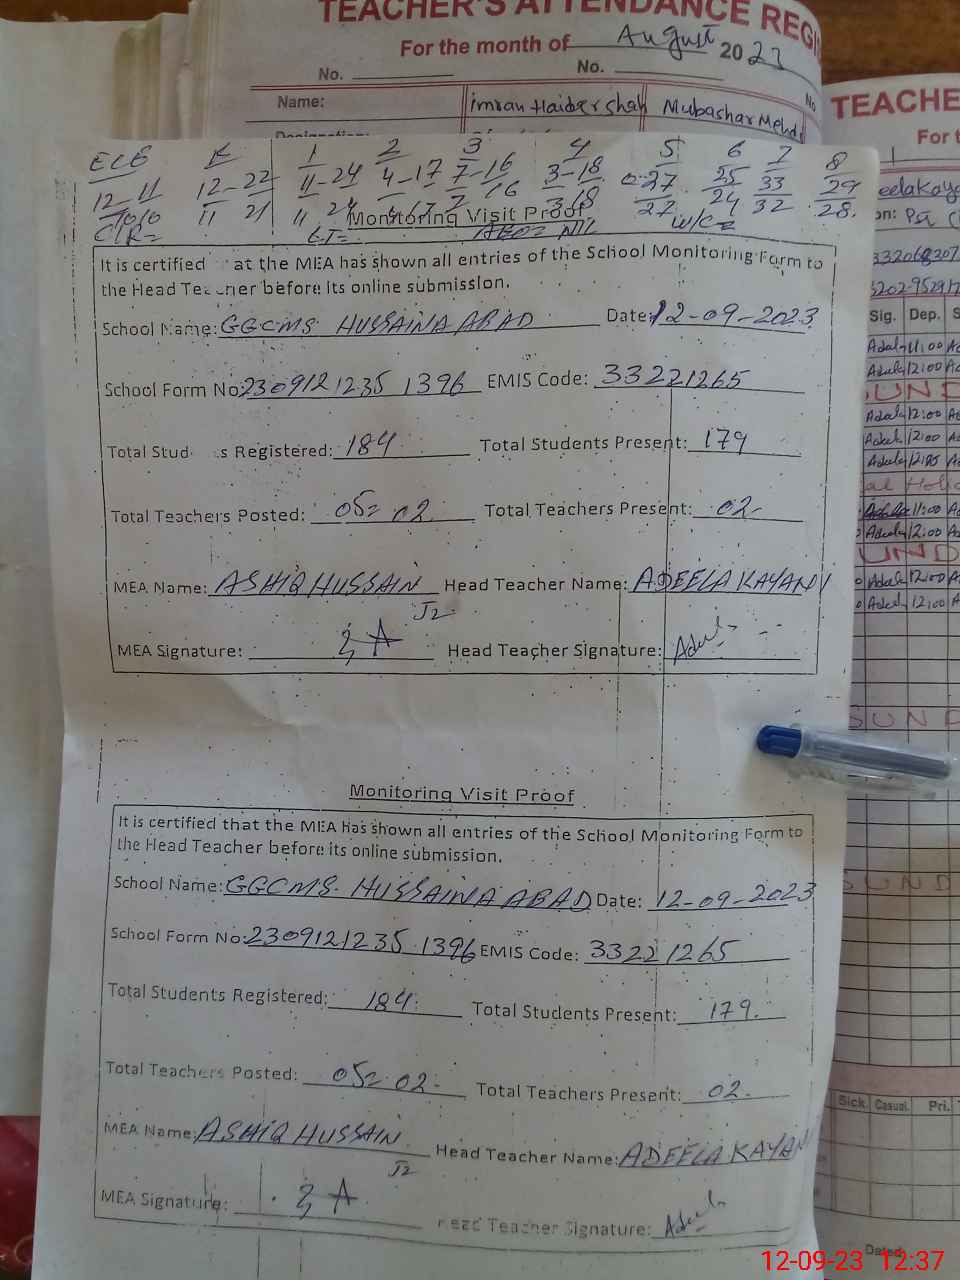 TEACHER'S ATTENDANCE REGI
For the month of August 2023
No. No. No
Name: Imran Haider shah Mubashar Mehdi
TEACHE
For t
ECE K 1 2 3 4 5 6 7 8
12-11 12-22 11-24 4-17 7-16 3-18 0-27 25 33 29
10/10 11 21 11 24 4 17 7 16 3 18 27 24 32 28.
CIR= LT= AEO= NIL W/C=
Monitoring Visit Proof
It is certified at the MEA has shown all entries of the School Monitoring Form to
the Head Teacher before its online submission.
School Name: GGCMS HUSSAINA ABAD Date: 12-09-2023
School Form No: 2309121235 1396 EMIS Code: 33221265
Total Stud s Registered: 184 Total Students Present: 179
Total Teachers Posted: 05= 02 Total Teachers Present: 02-
MEA Name: ASHIQ HUSSAIN Head Teacher Name: ADEELA KAYANI
J2
MEA Signature: Head Teacher Signature: Adeel
Monitoring Visit Proof
It is certified that the MEA has shown all entries of the School Monitoring Form to
the Head Teacher before its online submission.
School Name: GGCMS. HUSSAINA ABAD Date: 12-09-2023
School Form No: 2309121235 1396 EMIS Code: 33221265
Total Students Registered: 184 Total Students Present: 179.
Total Teachers Posted: 05= 02- Total Teachers Present: 02.
MEA Name: ASHIQ HUSSAIN Head Teacher Name: ADEELA KAYAN
J2
MEA Signature: Head Teacher Signature: Adeel
eelakaya
on: Pst
Sig. Dep. S
11:00
12:00
SUND
12:00
12:00
al Holi
11:00
12:00
SUND
12:00
12:00
SUND
SUND
Sick. Casual. Pri.
Dated
12-09-23 12:37